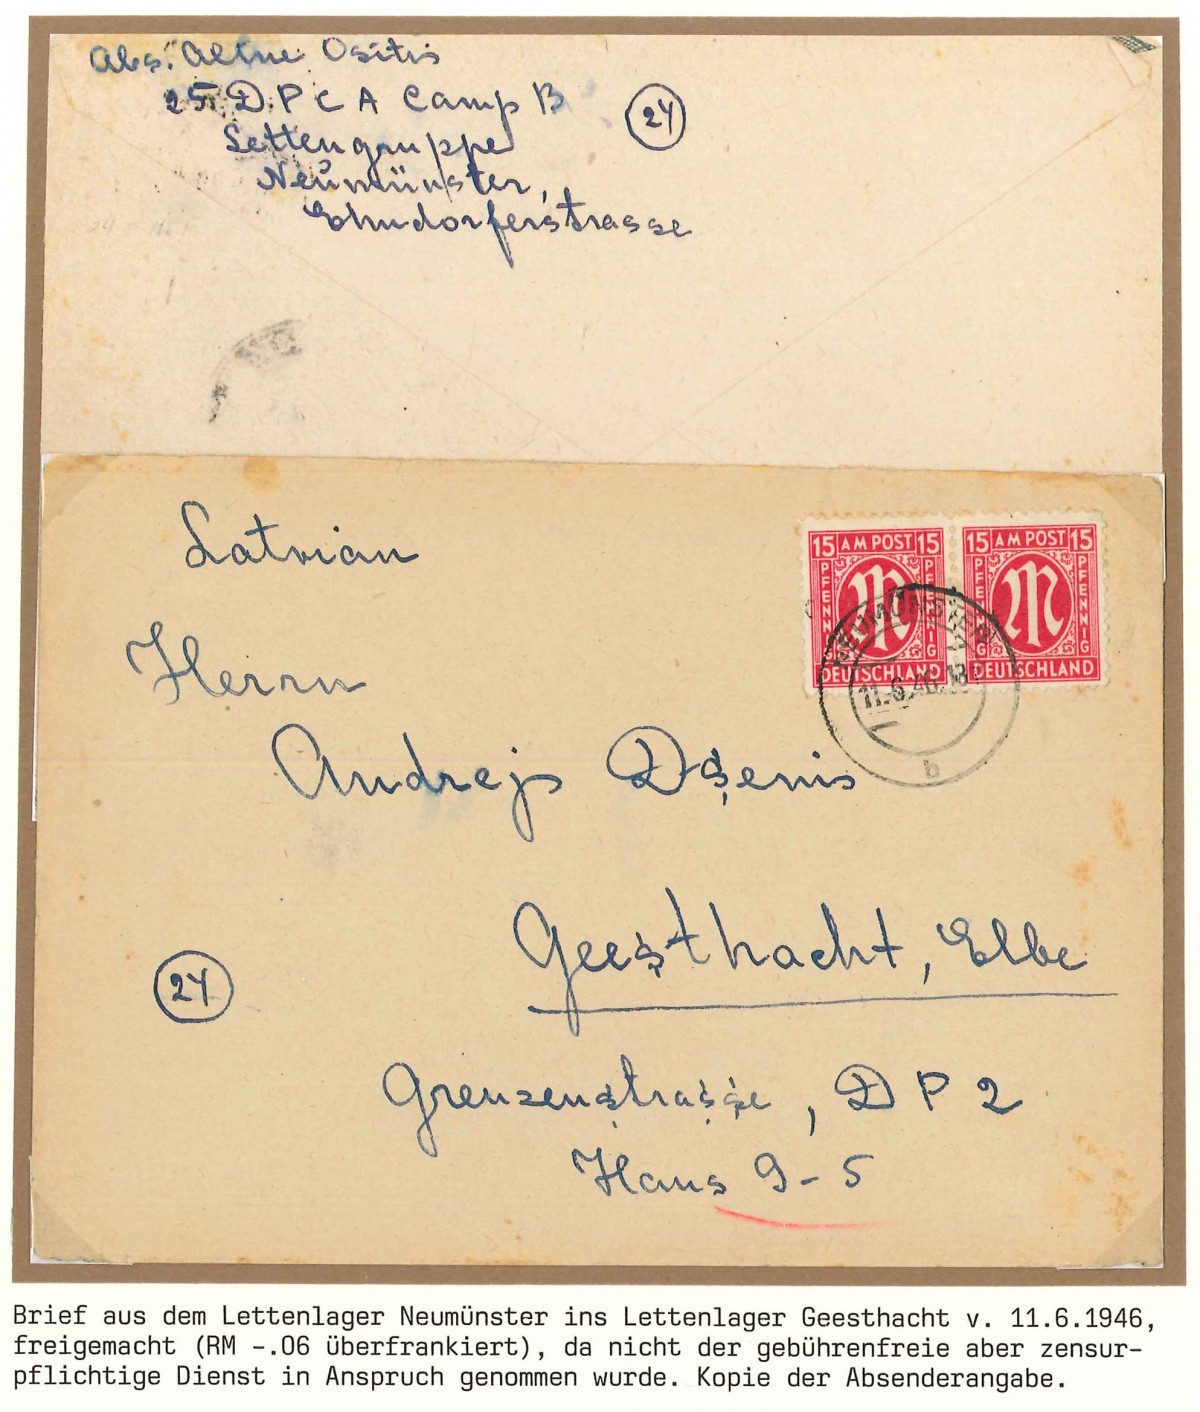 Abs. Alīne Ositis
25 D P C A Camp B
(24)
Lettengruppe
Neumünster,
Ehndorferstrasse
Latvian
15 AM POST 15 15 AM POST 15
PFENNIG PFENNIG PFENNIG PFENNIG
DEUTSCHLAND DEUTSCHLAND
NEUMÜNSTER
11.6.46.18
b
Herrn
Andrejs Dsenis
Geesthacht, Elbe
(24)
Grenzenstrasse, D P 2
Haus 9-5
Brief aus dem Lettenlager Neumünster ins Lettenlager Geesthacht v. 11.6.1946,
freigemacht (RM -.06 überfrankiert), da nicht der gebührenfreie aber zensur-
pflichtige Dienst in Anspruch genommen wurde. Kopie der Absenderangabe.